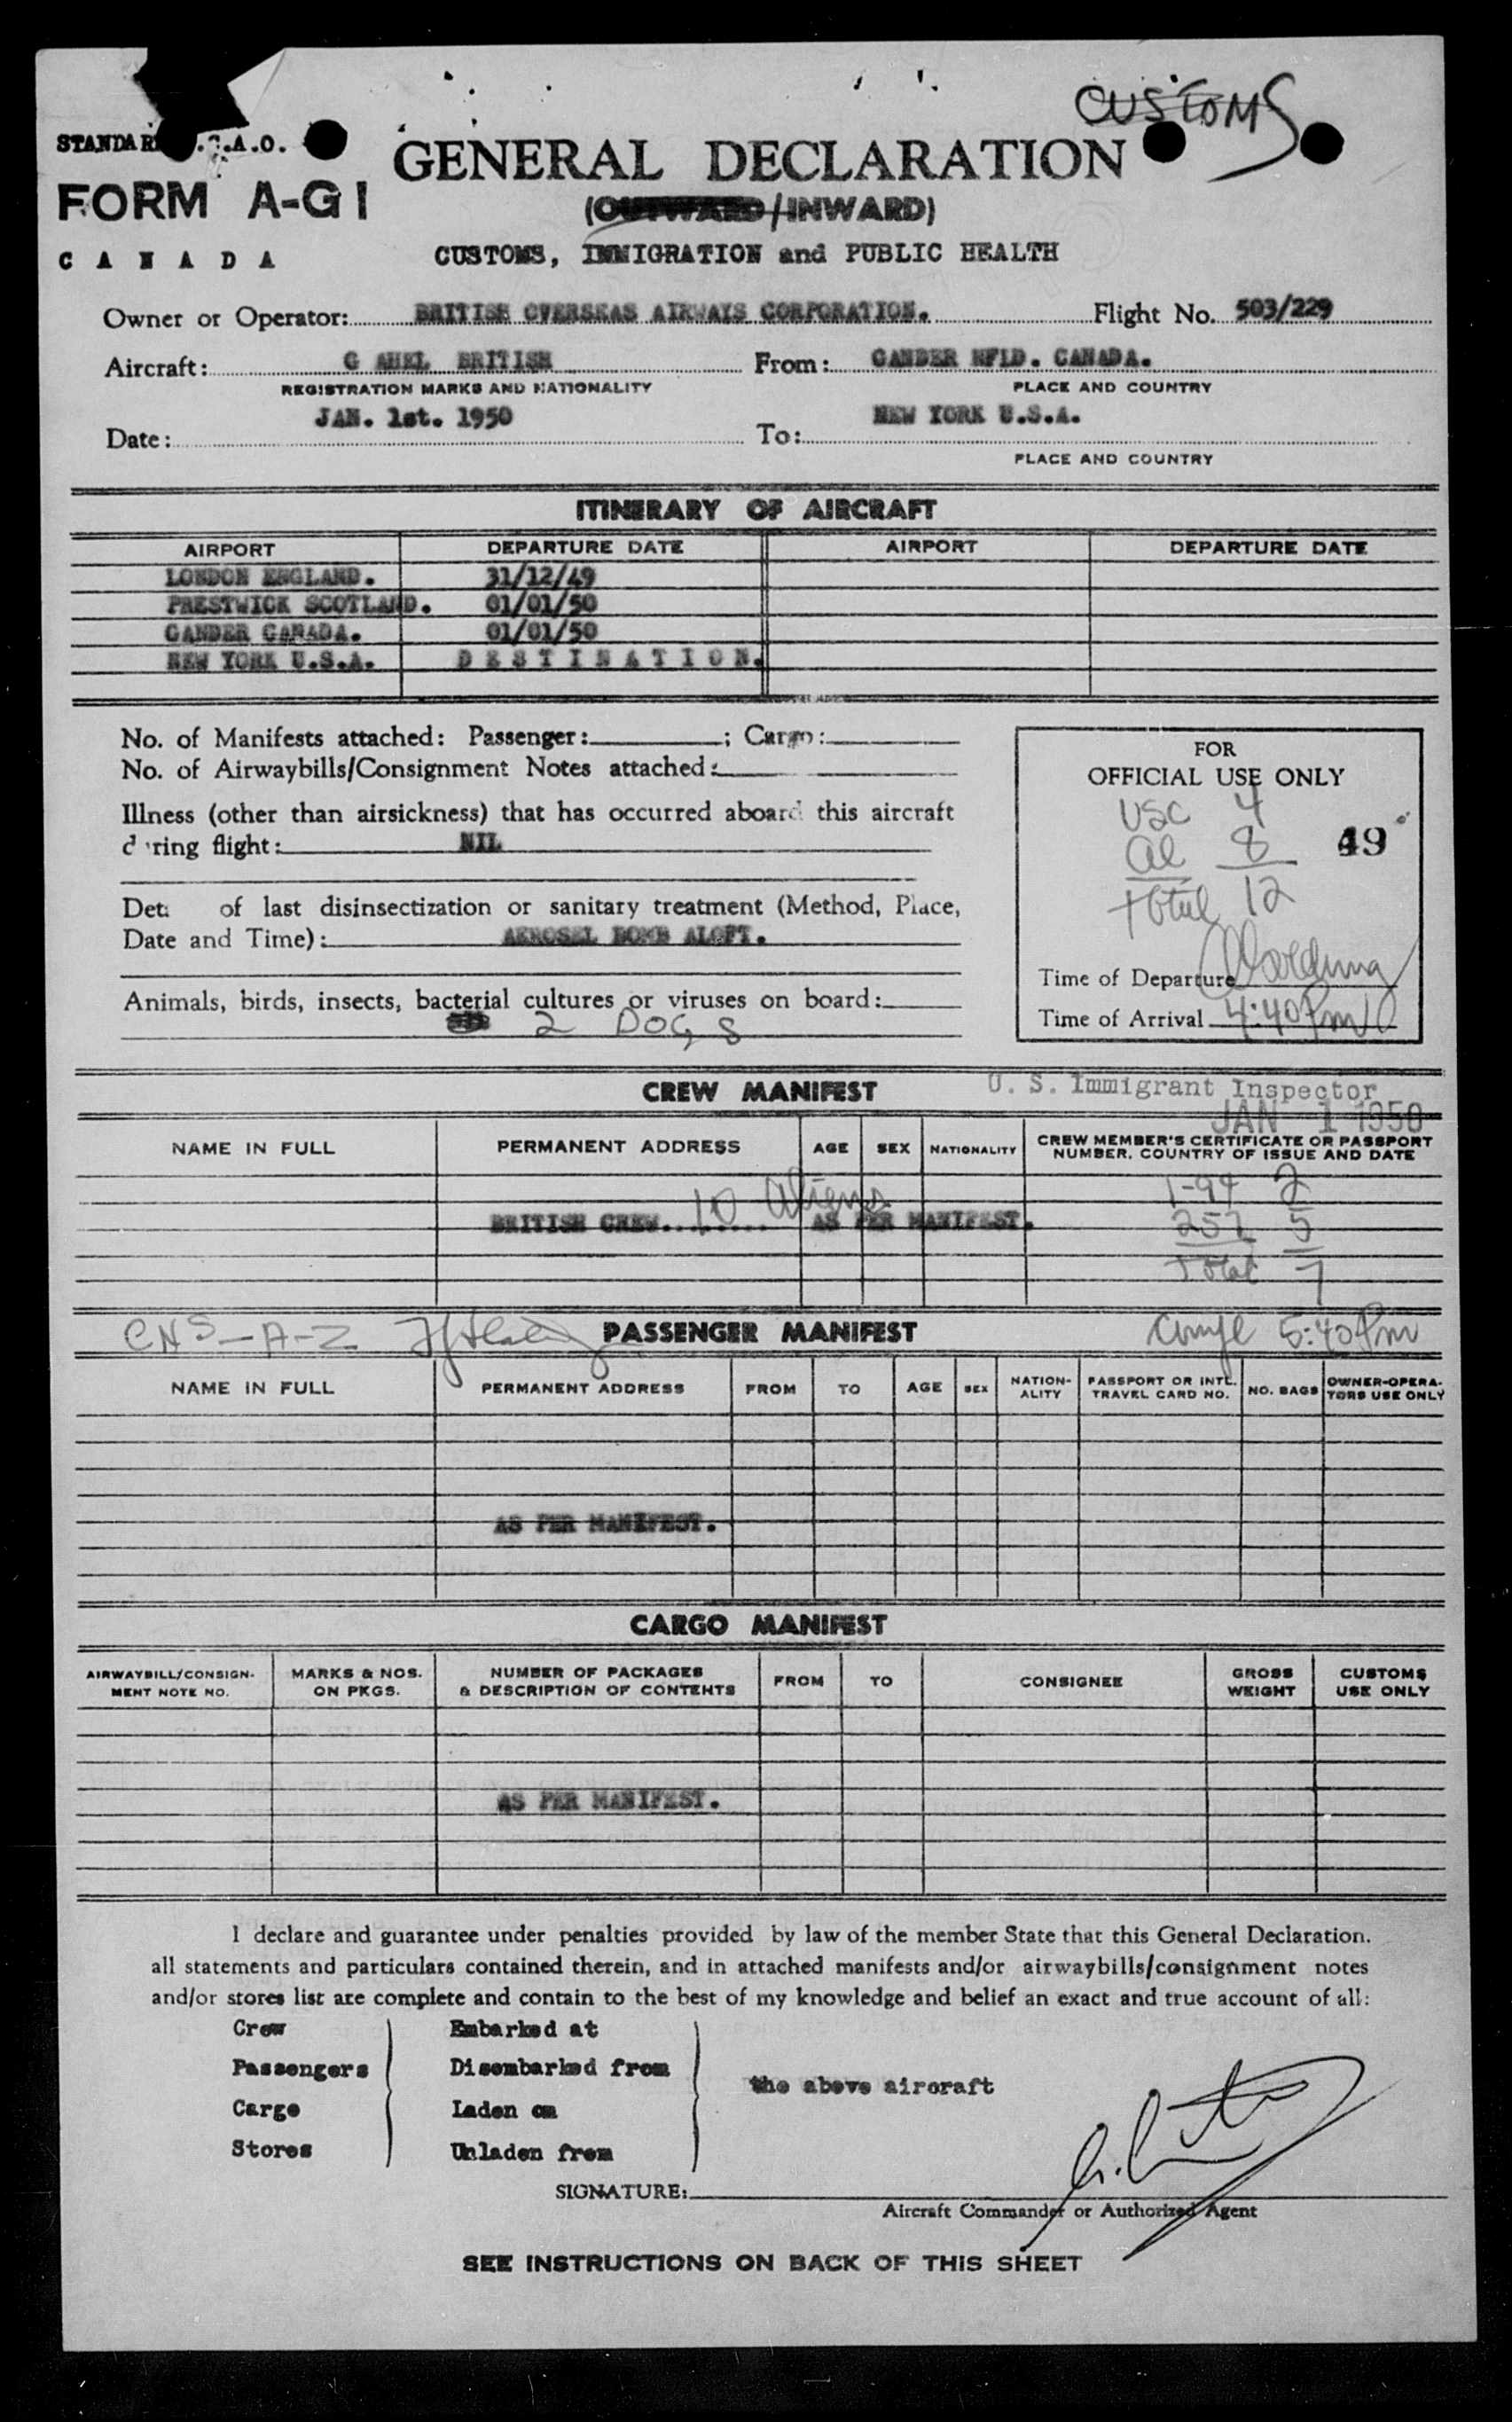 CUSTOMS
STANDARD .C.A.O.
FORM A-G1
CANADA
GENERAL DECLARATION
(OUTWARD/INWARD)
CUSTOMS, IMMIGRATION and PUBLIC HEALTH
Owner or Operator: BRITISH OVERSEAS AIRWAYS CORPORATION. Flight No. 503/229
Aircraft: G AHEL BRITISH From: GANDER NFLD. CANADA.
REGISTRATION MARKS AND NATIONALITY PLACE AND COUNTRY
Date: JAN. 1st. 1950 To: NEW YORK U.S.A.
PLACE AND COUNTRY
ITINERARY OF AIRCRAFT
AIRPORT DEPARTURE DATE AIRPORT DEPARTURE DATE
LONDON ENGLAND. 31/12/49
PRESTWICK SCOTLAND. 01/01/50
GANDER CANADA. 01/01/50
NEW YORK U.S.A. DESTINATION.
No. of Manifests attached: Passenger: ; Cargo:
No. of Airwaybills/Consignment Notes attached:
Illness (other than airsickness) that has occurred aboard this aircraft
d ring flight: NIL
Det of last disinsectization or sanitary treatment (Method, Place,
Date and Time): AEROSEL BOMB ALOFT.
Animals, birds, insects, bacterial cultures or viruses on board:
2 DOGS
FOR
OFFICIAL USE ONLY
USC 4
al 8 49
total 12
Time of Departure
Time of Arrival 4:40 Pm
U. S. Immigrant Inspector
JAN 1 1950
CREW MANIFEST
NAME IN FULL PERMANENT ADDRESS AGE SEX NATIONALITY CREW MEMBER'S CERTIFICATE OR PASSPORT NUMBER, COUNTRY OF ISSUE AND DATE
I-94 2
BRITISH CREW........ 10 aliens AS PER MANIFEST. 257 5
total 7
CNS-A-Z PASSENGER MANIFEST 5:40 Pm
NAME IN FULL PERMANENT ADDRESS FROM TO AGE SEX NATION-ALITY PASSPORT OR INTL. TRAVEL CARD NO. NO. BAGS OWNER-OPERA-TORS USE ONLY
AS PER MANIFEST.
CARGO MANIFEST
AIRWAYBILL/CONSIGN-MENT NOTE NO. MARKS & NOS. ON PKGS. NUMBER OF PACKAGES & DESCRIPTION OF CONTENTS FROM TO CONSIGNEE GROSS WEIGHT CUSTOMS USE ONLY
AS PER MANIFEST.
I declare and guarantee under penalties provided by law of the member State that this General Declaration.
all statements and particulars contained therein, and in attached manifests and/or airwaybills/consignment notes
and/or stores list are complete and contain to the best of my knowledge and belief an exact and true account of all:
Crew Embarked at
Passengers Disembarked from
the above aircraft
Cargo Laden on
Stores Unladen from
SIGNATURE:
Aircraft Commander or Authorized Agent
SEE INSTRUCTIONS ON BACK OF THIS SHEET